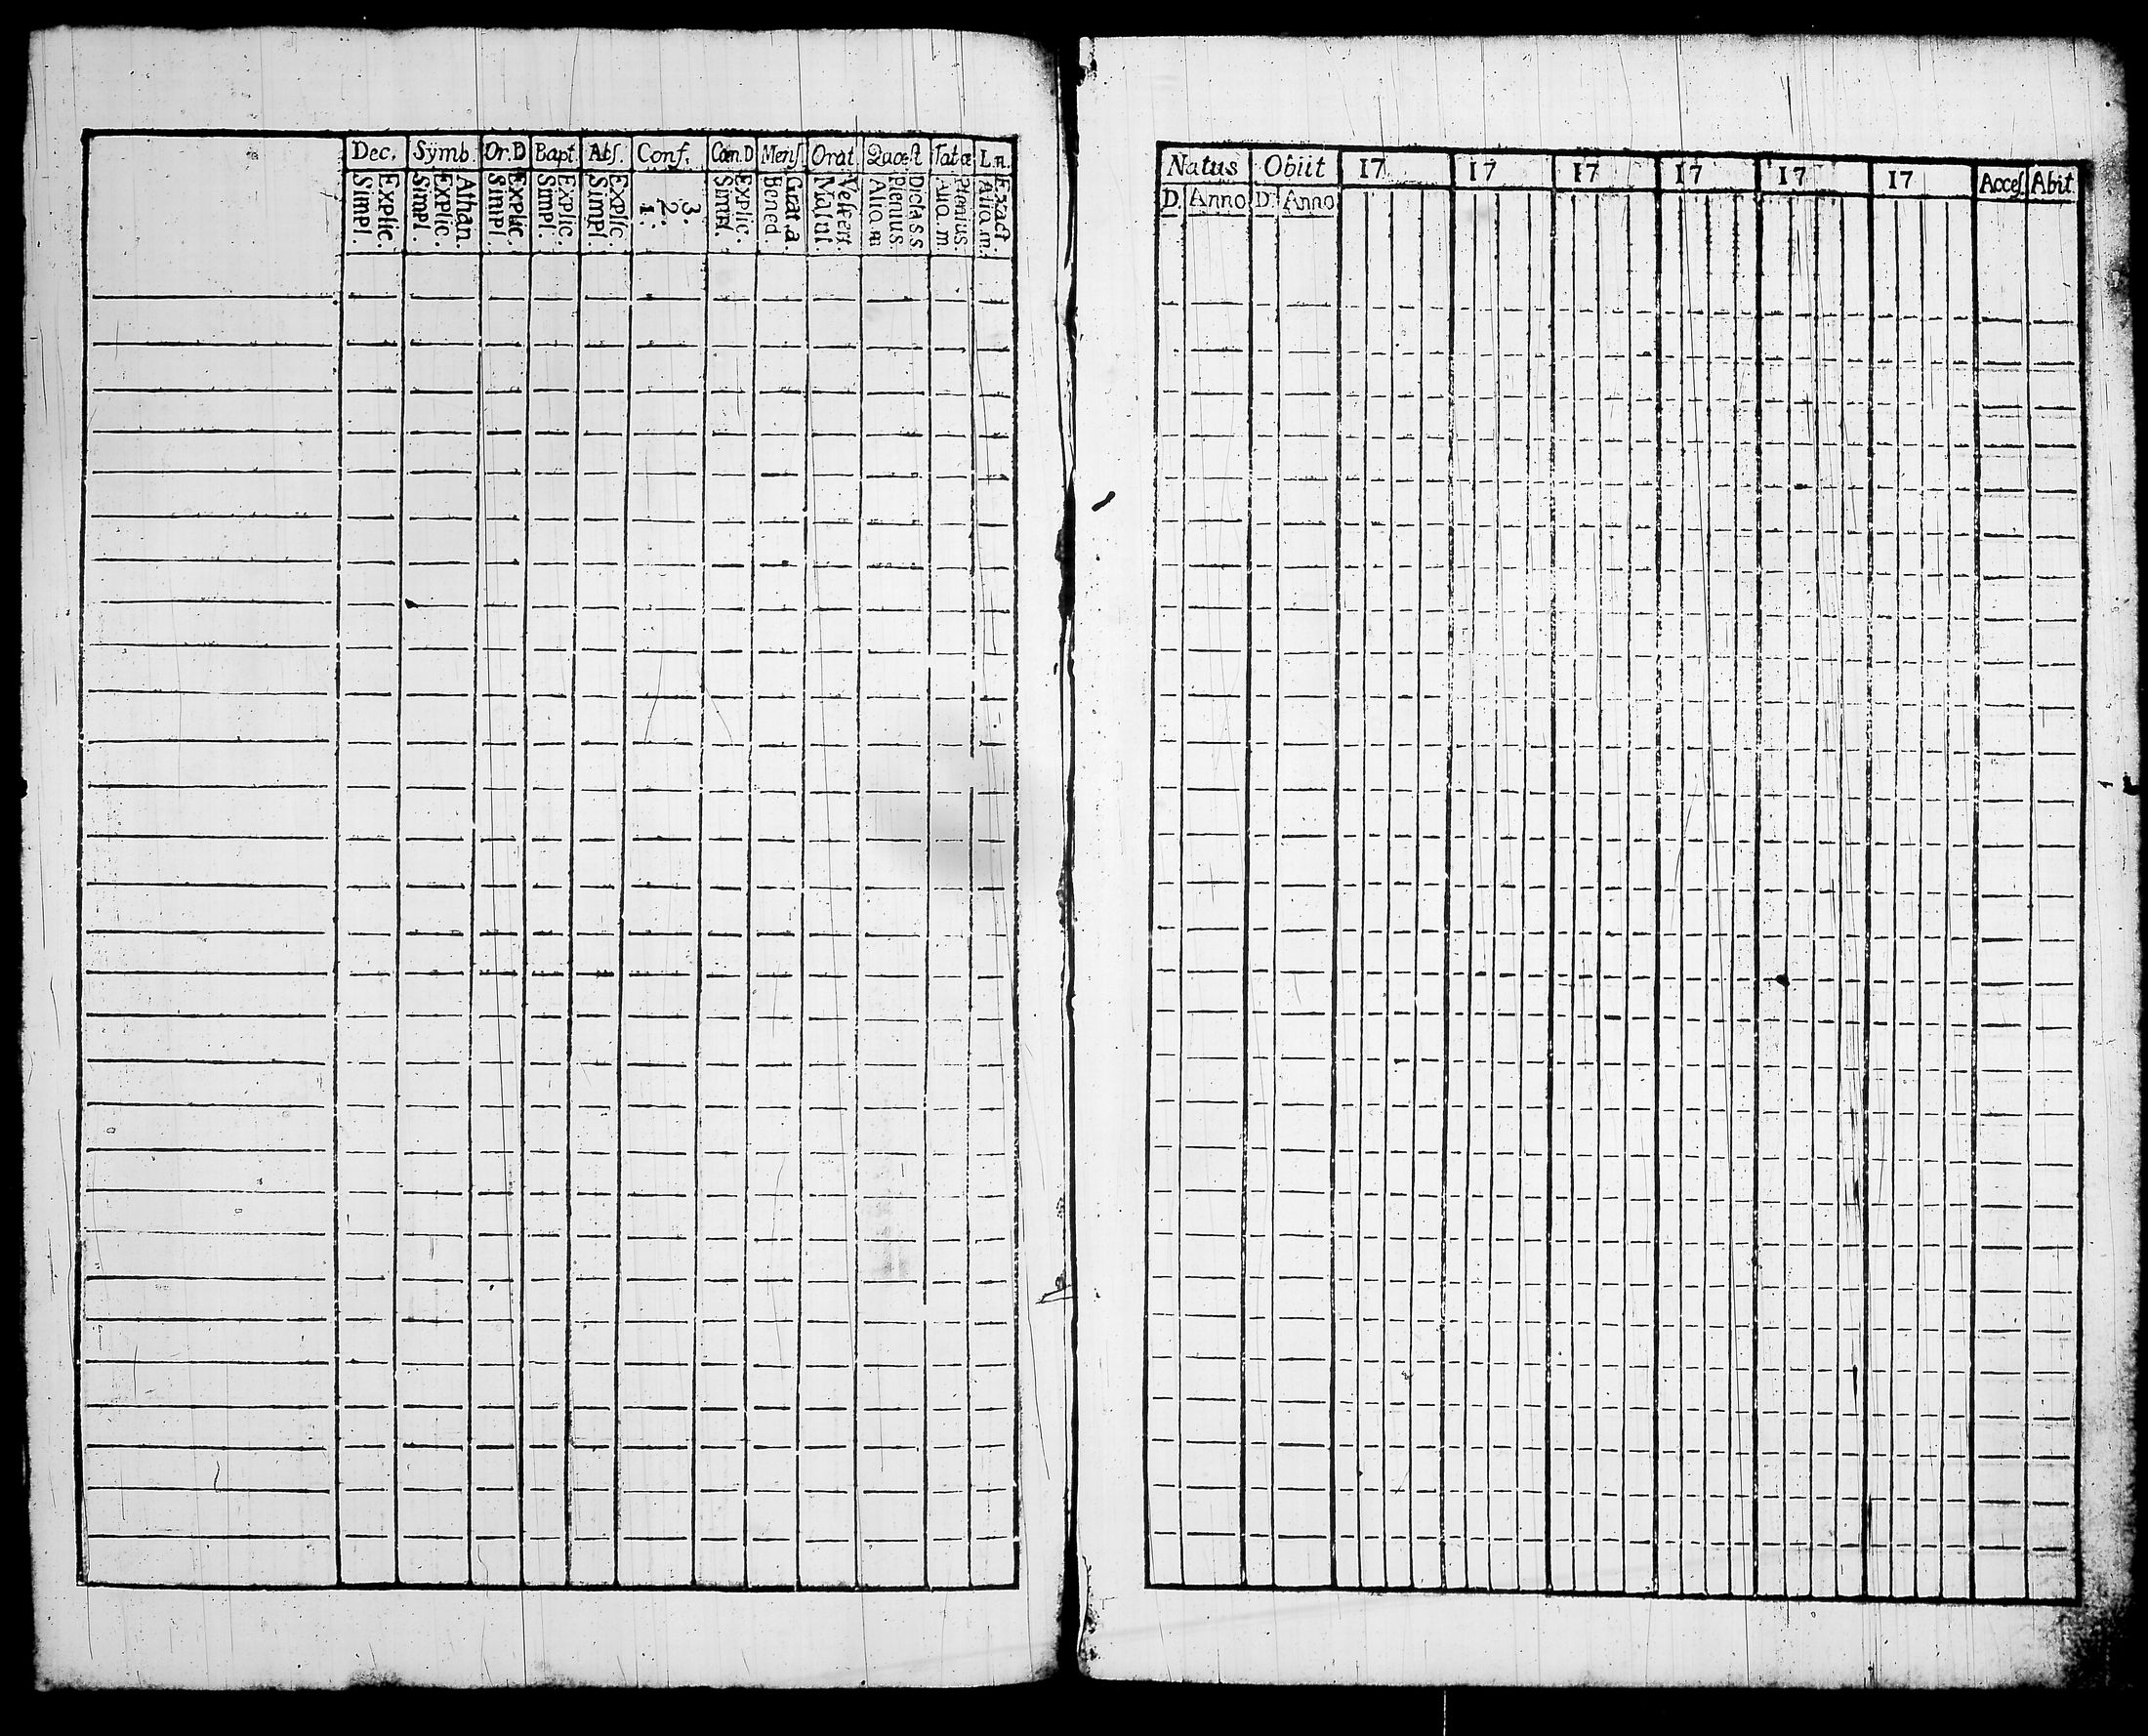 Dec. Symb. Or.D Bapt. Abs. Conf. Cœn.D Mens. Orat. Quæst Tabæ L.n.
Explic. Simpl.
Athan. Explic. Simpl.
Explic. Simpl.
Explic. Simpl.
Explic. Simpl.
3. 2. 1.
Explic. Simpl.
Grat.a. Bened.
Vespert. Matut.
Dicta s.s. Plenius. Aliq.m
Plenius. Aliq.m.
Exact Aliq.m.
Natus Obiit 17 17 17 17 17 17 Acces. Abit.
D. Anno D. Anno